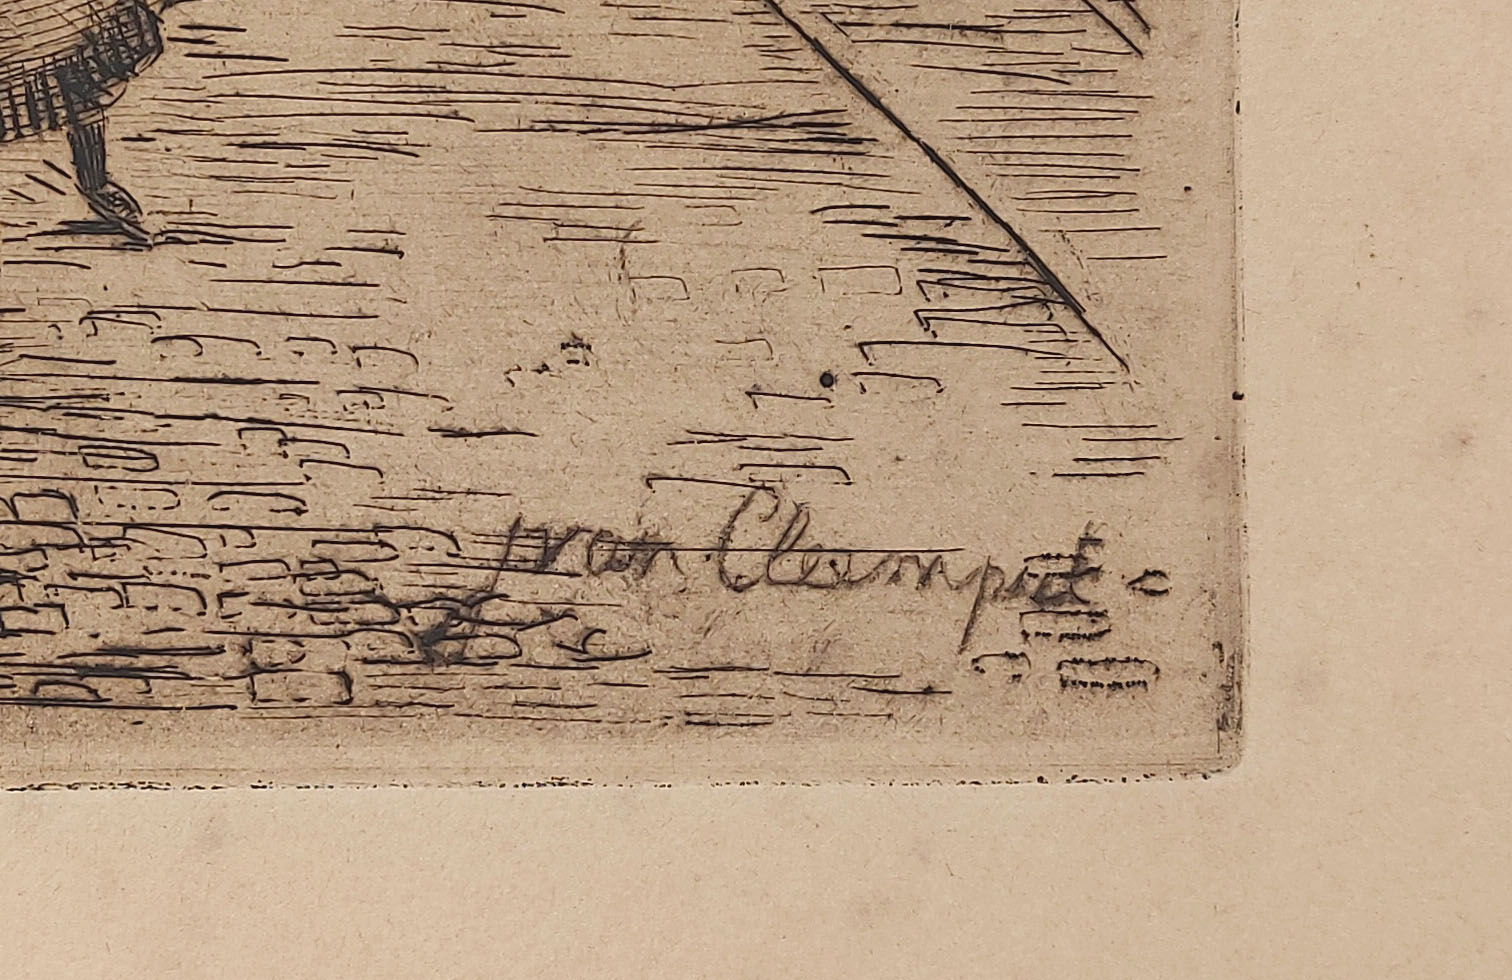 yvan Clermput